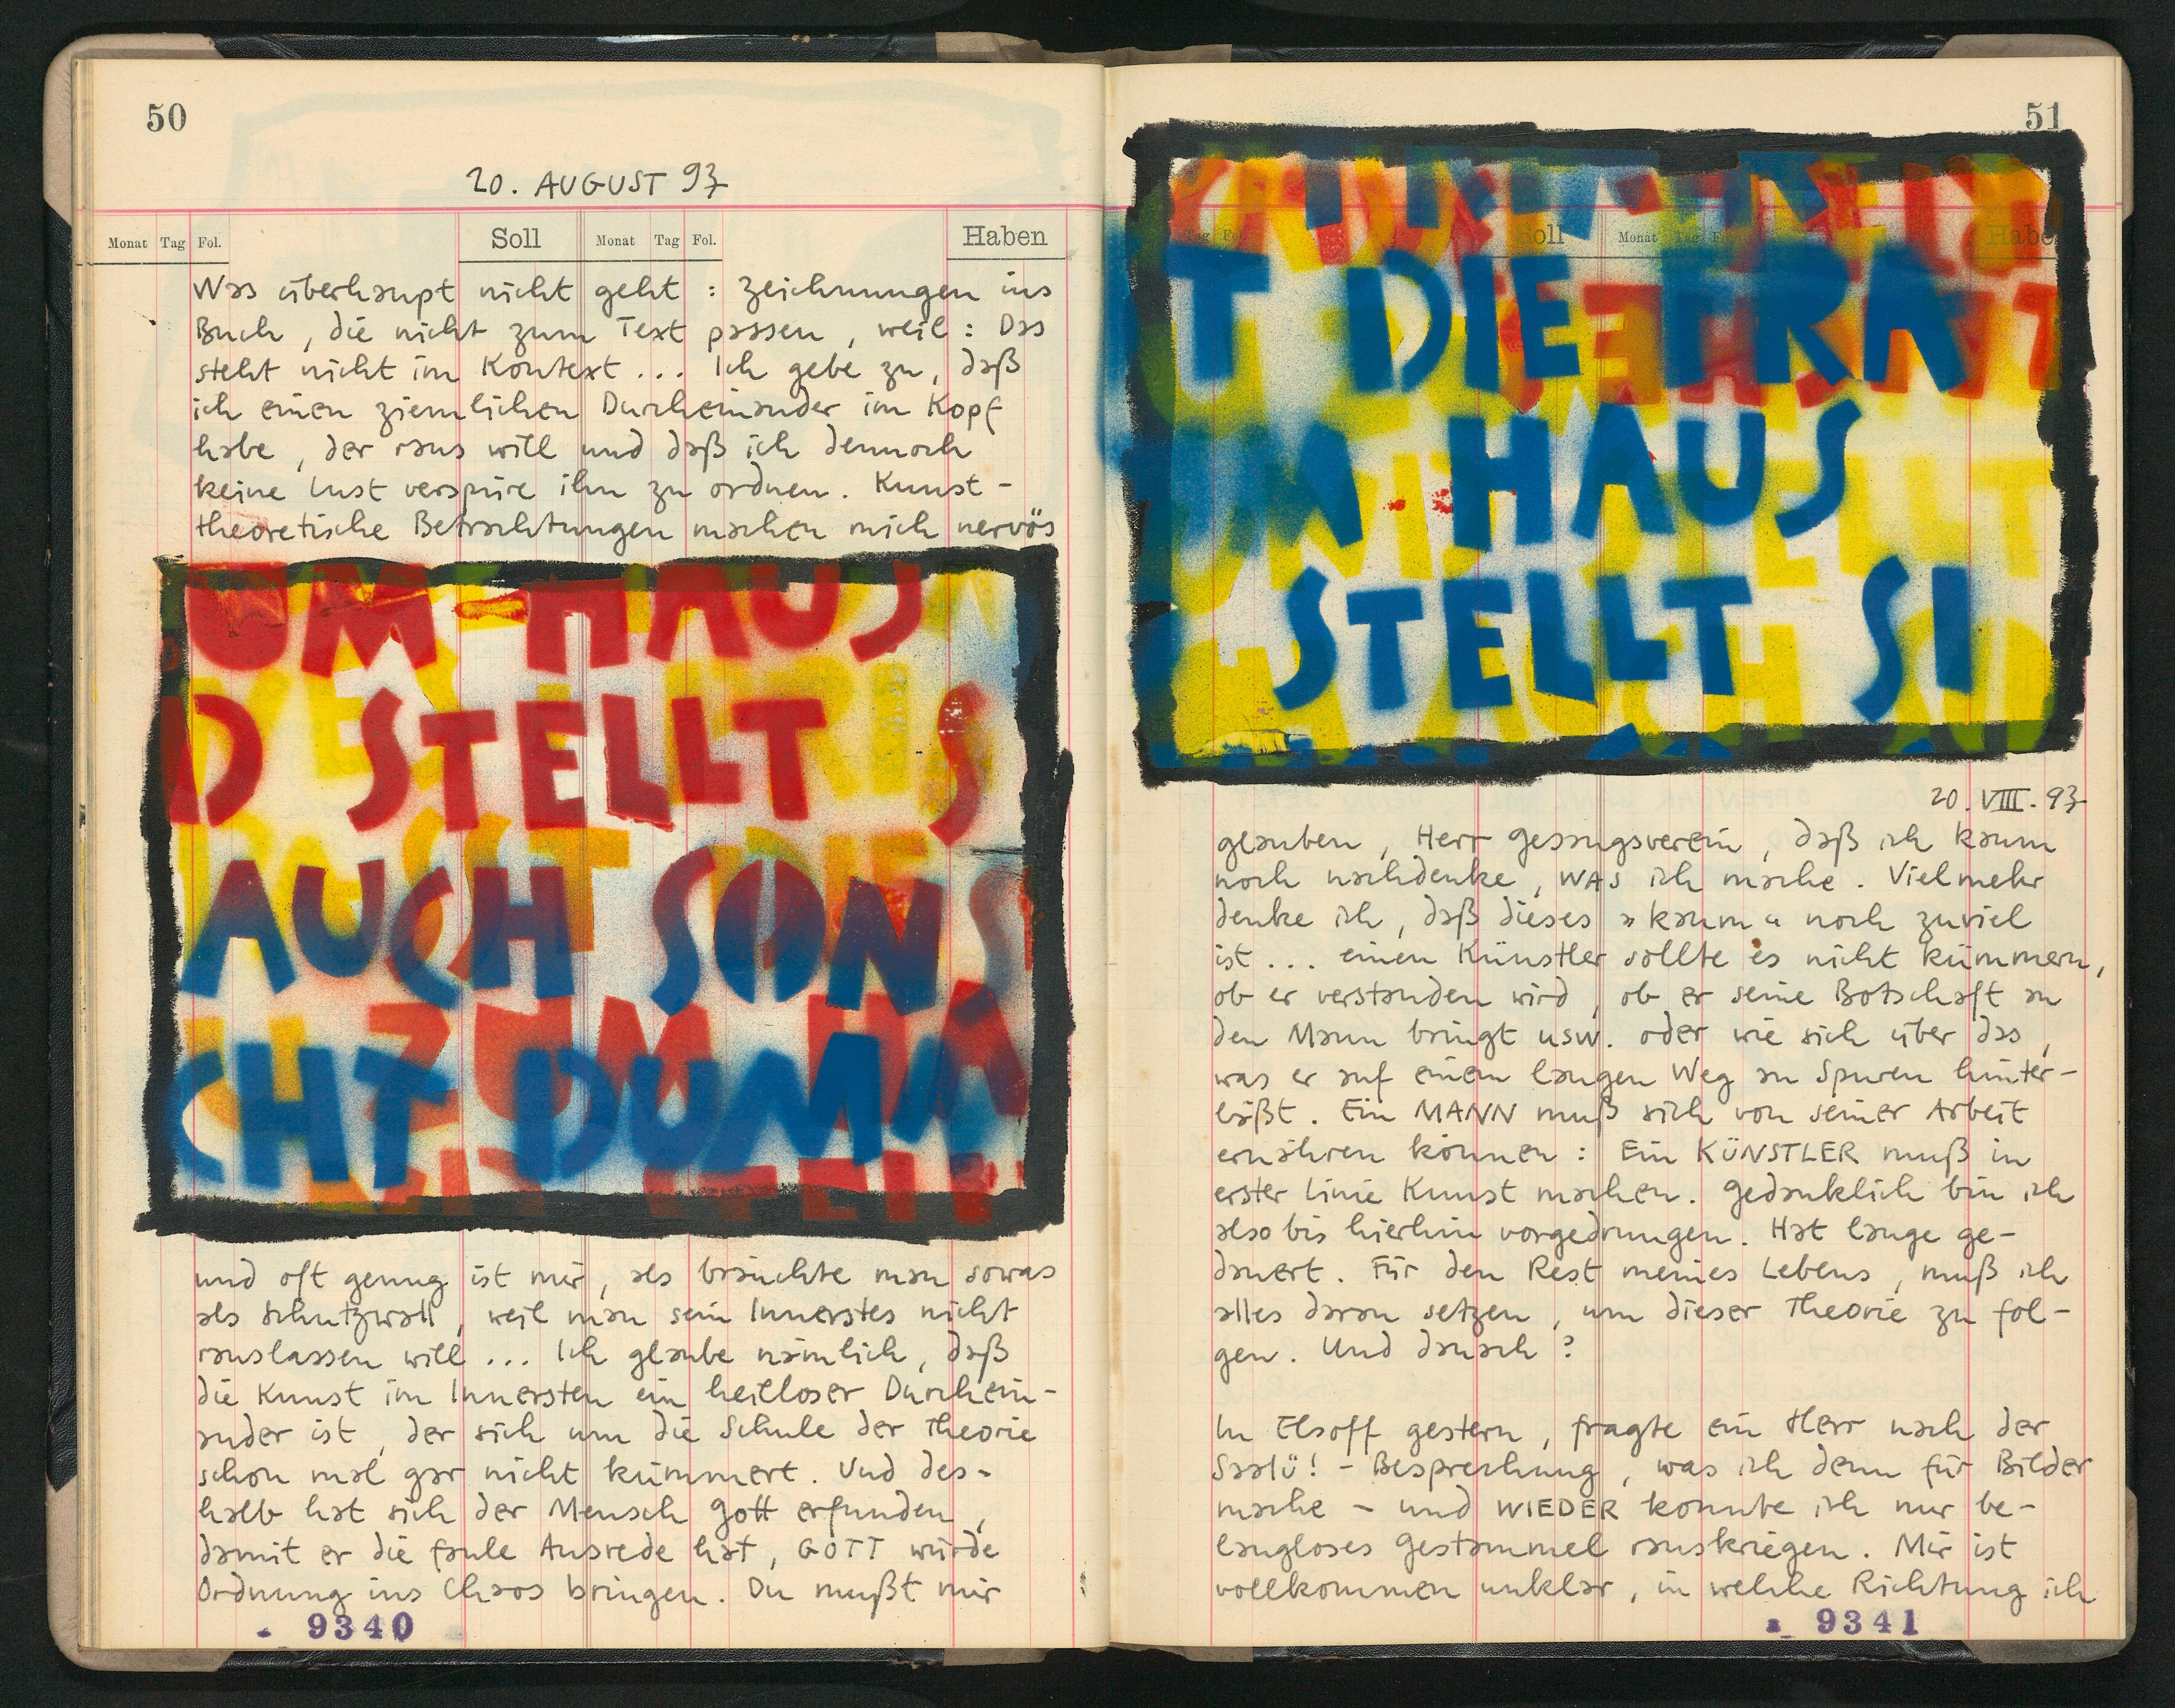 50
20. AUGUST 93
Monat Tag Fol. Soll Monat Tag Fol. Haben
Was überhaupt nicht geht : Zeichnungen ins
Buch , die nicht zum Text passen , weil : Das
steht nicht im Kontext ... Ich gebe zu, daß
ich einen ziemlichen Durcheinander im Kopf
habe , der raus will und daß ich dennoch
keine Lust verspüre ihn zu ordnen. Kunst-
theoretische Betrachtungen machen mich nervös
UM HAUS
D STELLT S
AUCH SONS
CHT DUMM
und oft genug ist mir, als bräuchte man sowas
als Schutzwall, weil man sein Innerstes nicht
rauslassen will ... Ich glaube nämlich, daß
die Kunst im Innersten ein heilloser Durchein-
ander ist, der sich um die Schule der Theorie
schon mal gar nicht kümmert. Und des-
halb hat sich der Mensch Gott erfunden,
damit er die faule Ausrede hat, GOTT würde
Ordnung ins Chaos bringen. Du mußt mir
9340
51
Tag Fol. Soll Monat Tag Haben
T DIE FRA
M HAUS
STELLT SI
20. VIII. 93
glauben, Herr Gesangsverein, daß ich kaum
noch nachdenke, WAS ich mache. Vielmehr
denke ich, daß dieses »kaum« noch zuviel
ist ... einen Künstler sollte es nicht kümmern,
ob er verstanden wird, ob er seine Botschaft an
den Mann bringt usw. oder wie sich über das,
was er auf einem langen Weg an Spuren hinter-
läßt. Ein MANN muß sich von seiner Arbeit
ernähren können : Ein KÜNSTLER muß in
erster Linie Kunst machen. Gedanklich bin ich
also bis hierhin vorgedrungen. Hat lange ge-
dauert. Für den Rest meines Lebens, muß ich
alles daran setzen, um dieser Theorie zu fol-
gen. Und danach ?
In Elsoff gestern, fragte ein Herr nach der
Saalü! - Besprechung, was ich denn für Bilder
mache - und WIEDER konnte ich nur be-
langloses Gestammel rauskriegen. Mir ist
vollkommen unklar, in welche Richtung ich
9341